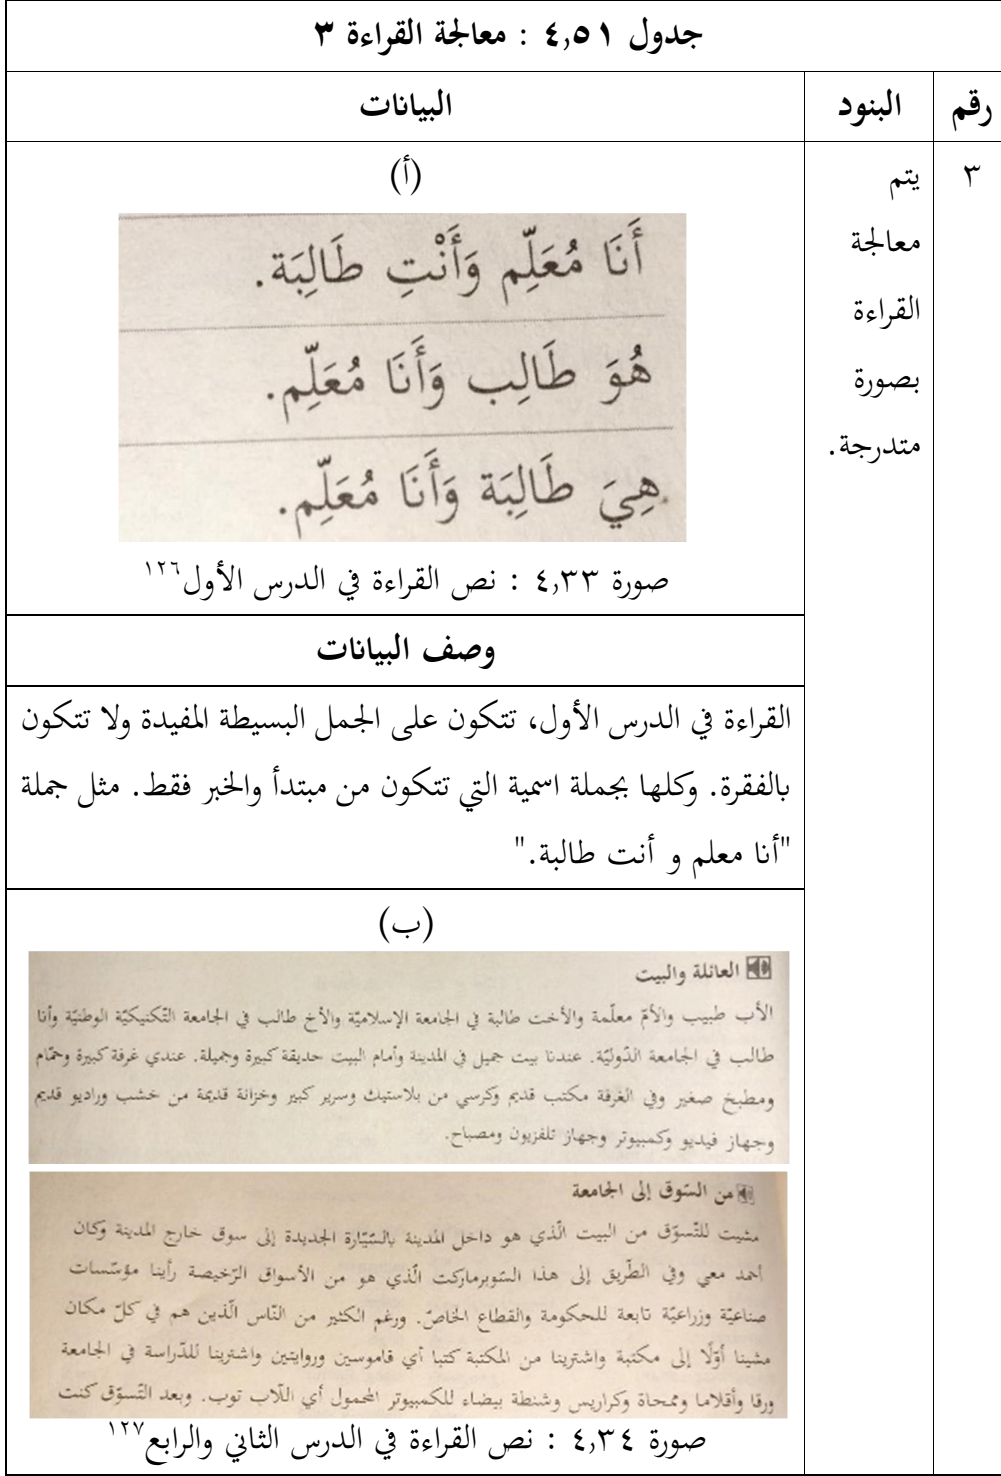 جدول ٤,٥١ : معالجة القراءة ٣
رقم
البنود
البيانات
٣
يتم
معالجة
القراءة
بصورة
متدرجة.
(أ)
أَنَا مُعَلِّم وَأَنْتِ طَالِبَة.
هُوَ طَالِب وَأَنَا مُعَلِّم.
هِيَ طَالِبَة وَأَنَا مُعَلِّم.
صورة ٤,٣٣ : نص القراءة في الدرس الأول١٢٦
وصف البيانات
القراءة في الدرس الأول، تتكون على الجمل البسيطة المفيدة ولا تتكون
بالفقرة. وكلها بجملة اسمية التي تتكون من مبتدأ والخبر فقط. مثل جملة
"أنا معلم و أنت طالبة."
(ب)
العائلة والبيت
الأب طبيب والأمّ معلّمة والأخت طالبة في الجامعة الإسلاميّة والأخ طالب في الجامعة التّكنيكيّة الوطنيّة وأنا
طالب في الجامعة الدّوليّة. عندنا بيت جميل في المدينة وأمام البيت حديقة كبيرة وجميلة. عندي غرفة كبيرة وحمّام
ومطبخ صغير وفي الغرفة مكتب قديم وكرسي من بلاستيك وسرير كبير وخزانة قديمة من خشب وراديو قديم
وجهاز فيديو وكمبيوتر وجهاز تلفزيون ومصباح.
من السّوق إلى الجامعة
مشيت للتّسوّق من البيت الّذي هو داخل المدينة بالسّيّارة الجديدة إلى سوق خارج المدينة وكان
أحمد معي وفي الطّريق إلى هذا السّوبرماركت الّذي هو من الأسواق الرّخيصة رأينا مؤسّسات
صناعيّة وزراعيّة تابعة للحكومة والقطاع الخاصّ. ورغم الكثير من النّاس الّذين هم في كلّ مكان
مشينا أوّلًا إلى مكتبة واشترينا من المكتبة كتبا أي قاموسين وروايتين واشترينا للدّراسة في الجامعة
ورقا وأقلاما وممحاة وكراريس وشنطة بيضاء للكمبيوتر المحمول أي اللّاب توب. وبعد التّسوّق كنت
صورة ٤,٣٤ : نص القراءة في الدرس الثاني والرابع١٢٧